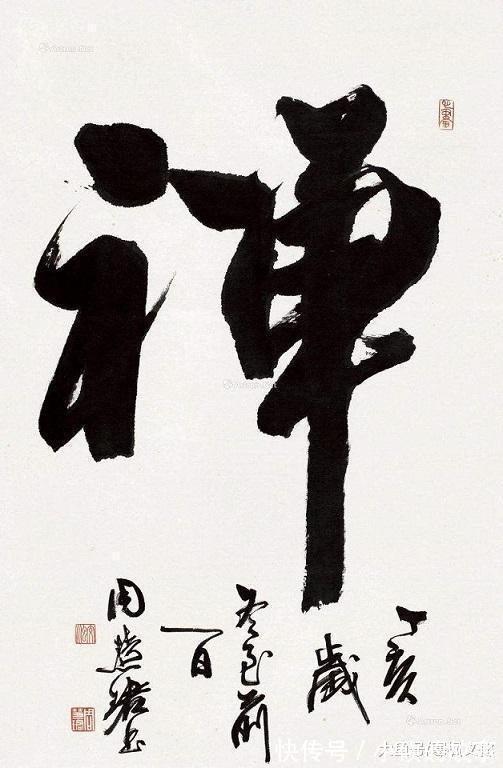 禅
丁亥
歲
冬至前
一日
周慧珺书
快传号